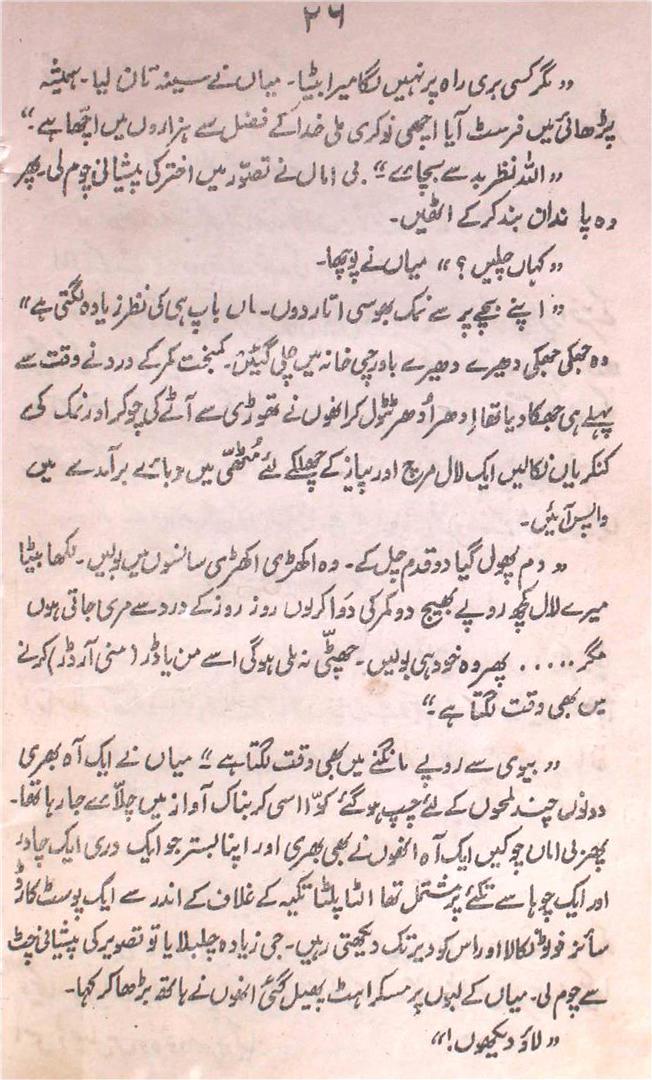 ۲۶
”مگر کسی بری راہ پر نہیں لگا میرا بیٹا۔ میاں نے سینہ تان لیا۔ ہمیشہ
پڑھائی میں فرسٹ آیا اچھی نوکری ملی خدا کے فضل سے ہزاروں میں اچھا ہے۔“
”اللہ نظر بد سے بچائے“۔ بی اماں نے تصوّر میں اختر کی پیشانی چوم لی۔ پھر
وہ پاندان بند کر کے اٹھیں۔
”کہاں چلیں؟“ میاں نے پوچھا۔
”اپنے بچے پر سے نمک بھوسی اتار دوں۔ ماں باپ ہی کی نظر زیادہ لگتی ہے“
وہ جھکی جھکی دھیرے دھیرے باورچی خانہ میں چلی گئیں۔ کمبخت کمر کے درد نے وقت سے
پہلے ہی جھکا دیا تھا اِدھر اُدھر ٹٹول کر انھوں نے تھوڑی سے آٹے کی چوکر اور نمک کی
کنکریاں نکالیں ایک لال مرچ اور پیاز کے چھلکے لئے مُٹھّی میں دبائے برآمدے میں
واپس آئیں۔
”دم پھول گیا دو قدم چل کے۔ وہ اکھڑی اکھڑی سانسوں میں بولیں۔ لکھا بیٹا
میرے لال کچھ روپے بھیج دو کمر کی دَوا کر لوں روز روز کے درد سے مری جاتی ہوں
مگر ..... پھر وہ خود ہی بولیں۔ چھٹّی نہ ملی ہوگی اسے من یاڈر (منی آرڈر) کرنے
میں بھی وقت لگتا ہے۔“
”بیوی سے روپے مانگنے میں بھی وقت لگتا ہے“۔ میاں نے ایک آہ بھری
دونوں چند لمحوں کے لئے چپ ہو گئے کوّا اسی کربناک آواز میں چلّائے جا رہا تھا۔
پھر بی اماں چوکیں ایک آہ انھوں نے بھی بھری اور اپنا بستر جو ایک دری ایک چادر
اور ایک چوہا سے تکئے پر مشتمل تھا الٹا پلٹا تکیہ کے غلاف کے اندر سے ایک پوسٹ کارڈ
سائز فوٹو نکالا اور اس کو دیر تک دیکھتی رہیں۔ جی زیادہ چلبلایا تو تصویر کی پیشانی چٹ
سے چوم لی۔ میاں کے لبوں پر مسکراہٹ پھیل گئی انھوں نے ہاتھ بڑھا کر کہا۔
”لاؤ دیکھوں!“